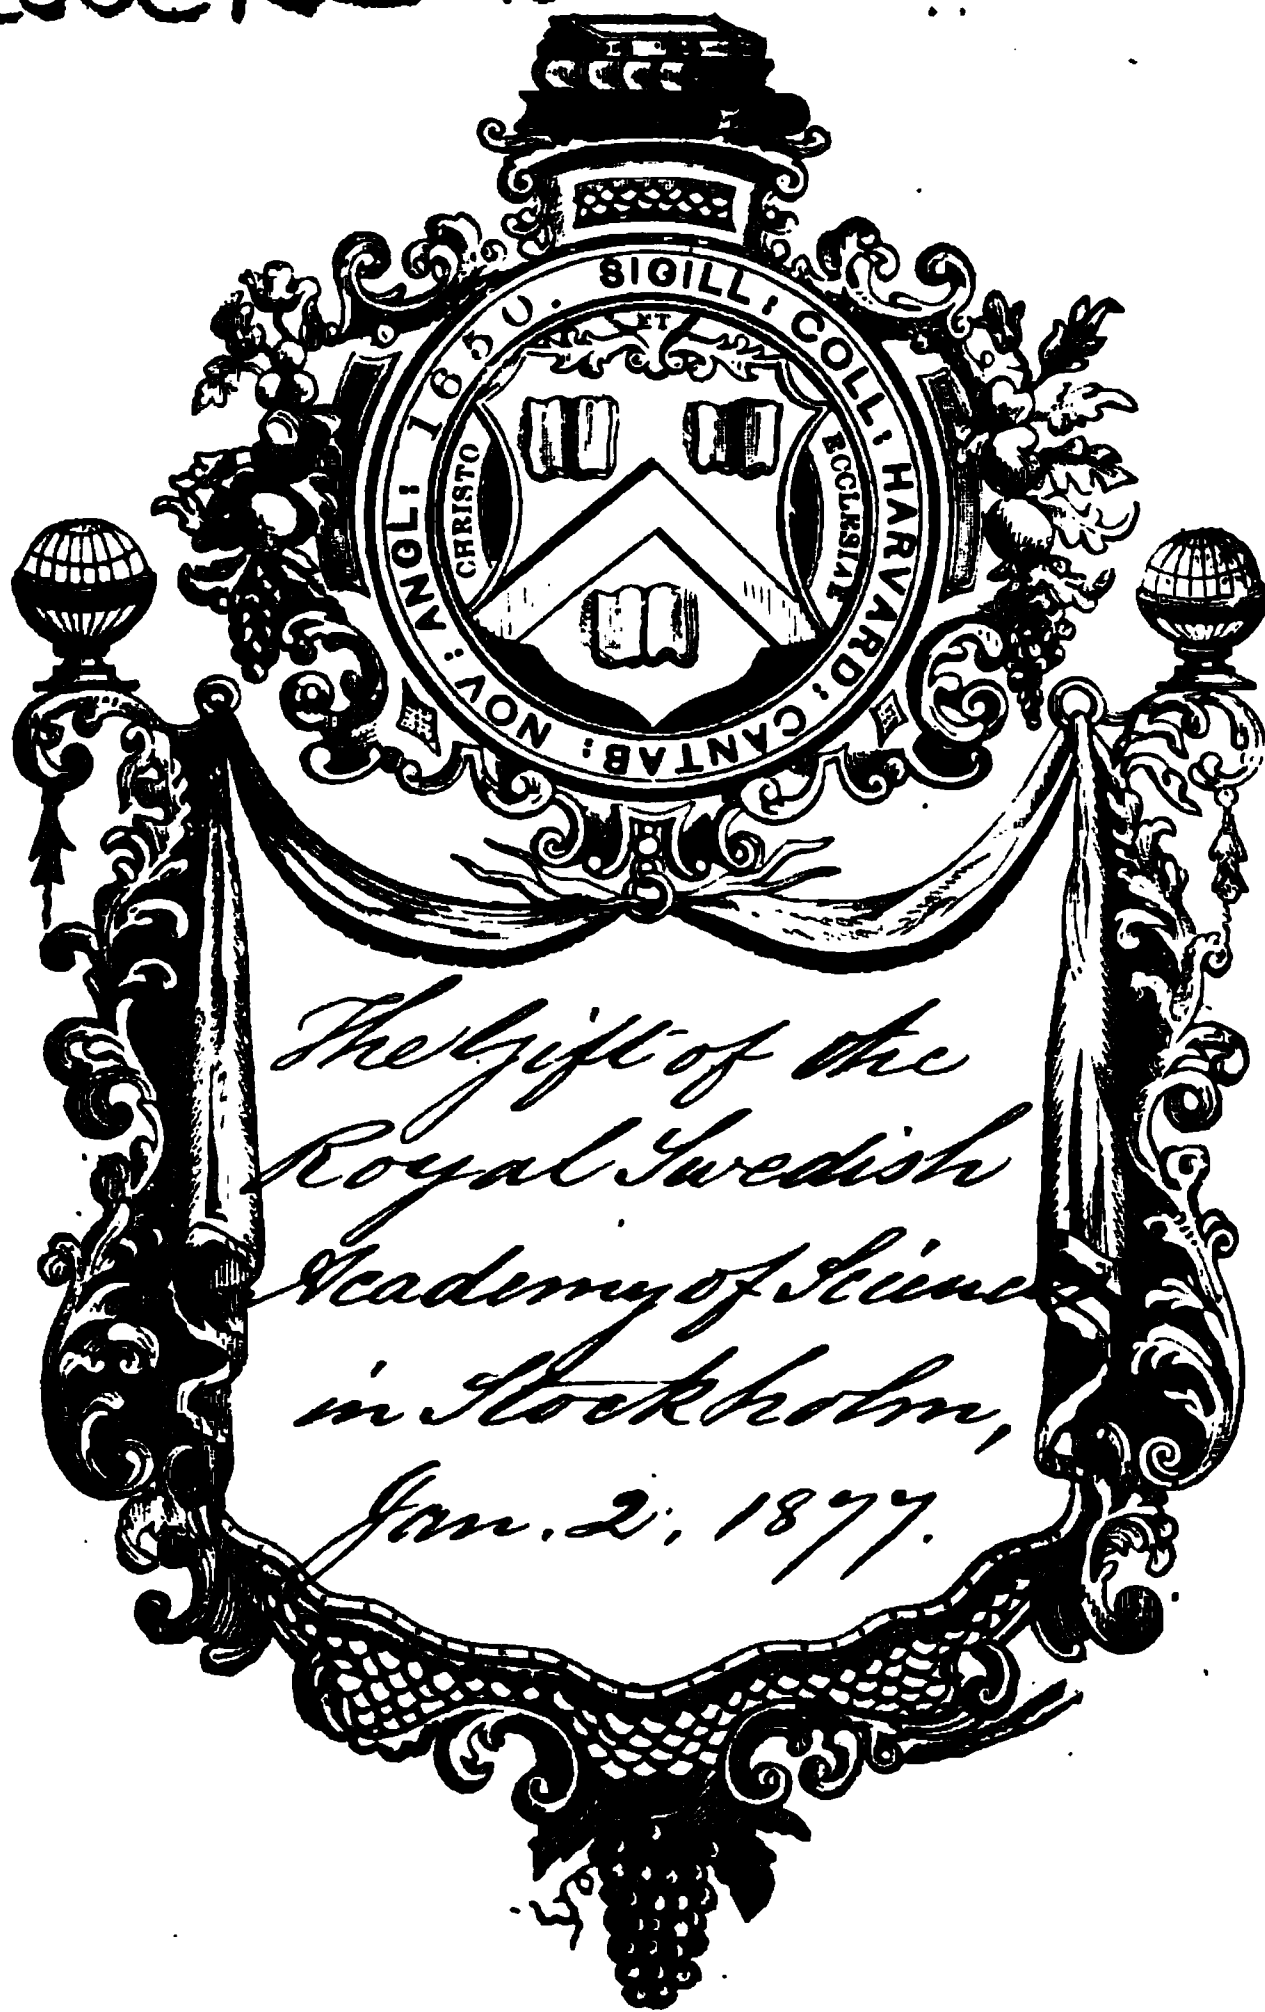 SIGILL: COLL: HARVARD: CANTAB: NOV: ANGL: 1650.
ET
CHRISTO
ECCLESIAE
The Gift of the
Royal Swedish
Academy of Sciences
in Stockholm,
Jan. 2, 1877.